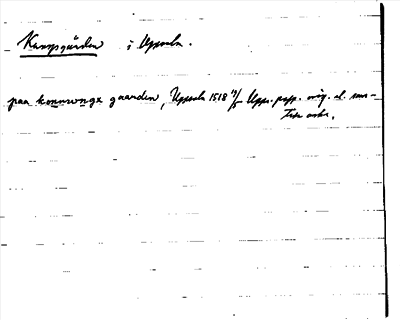 Kungsgården i Uppsala.
paa konnungx gaarden, Uppsala 1518 19/5 Upps. papp. orig. el. sam-